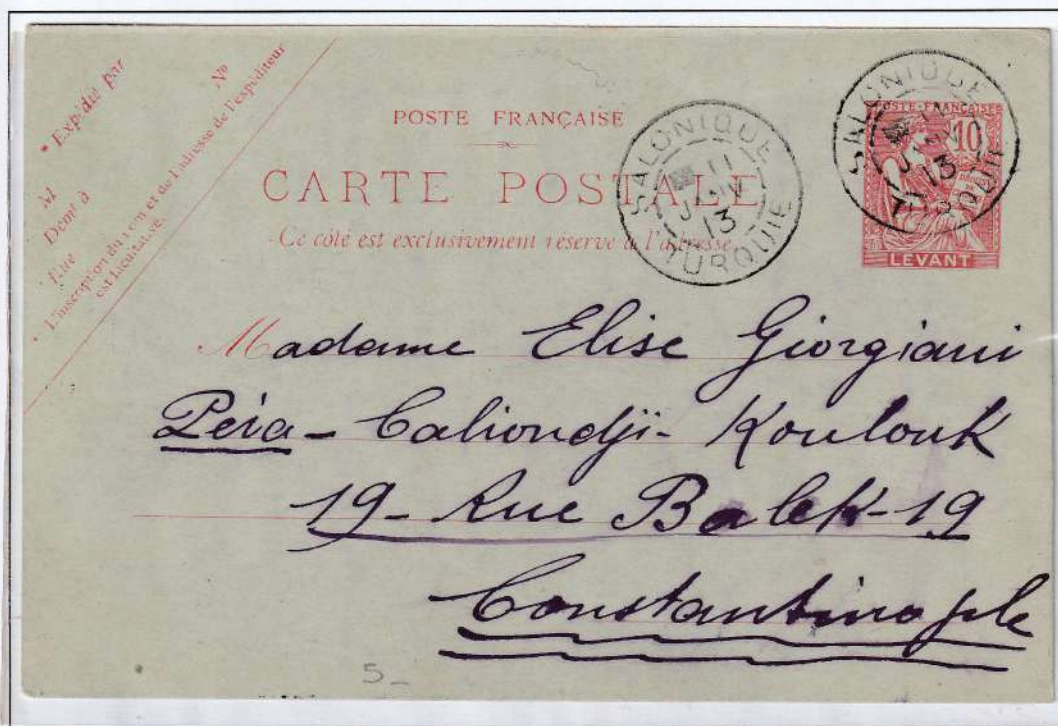 Expédié par
N°
M
Demt à
Rue
N°
L'inscription du nom et de l'adresse de l'expéditeur
est facultative.
POSTE FRANÇAISE
CARTE POSTALE
Ce côté est exclusivement réservé à l'adresse.
SALONIQUE
11
JANV
13
TURQUIE
SALONIQUE
11
JANV
13
TURQUIE
POSTE FRANÇAISE
10
LEVANT
Madame Elise Giorgiani
Péra - Caliondji - Koulouk
19 - Rue Balek - 19
Constantinople
5 -